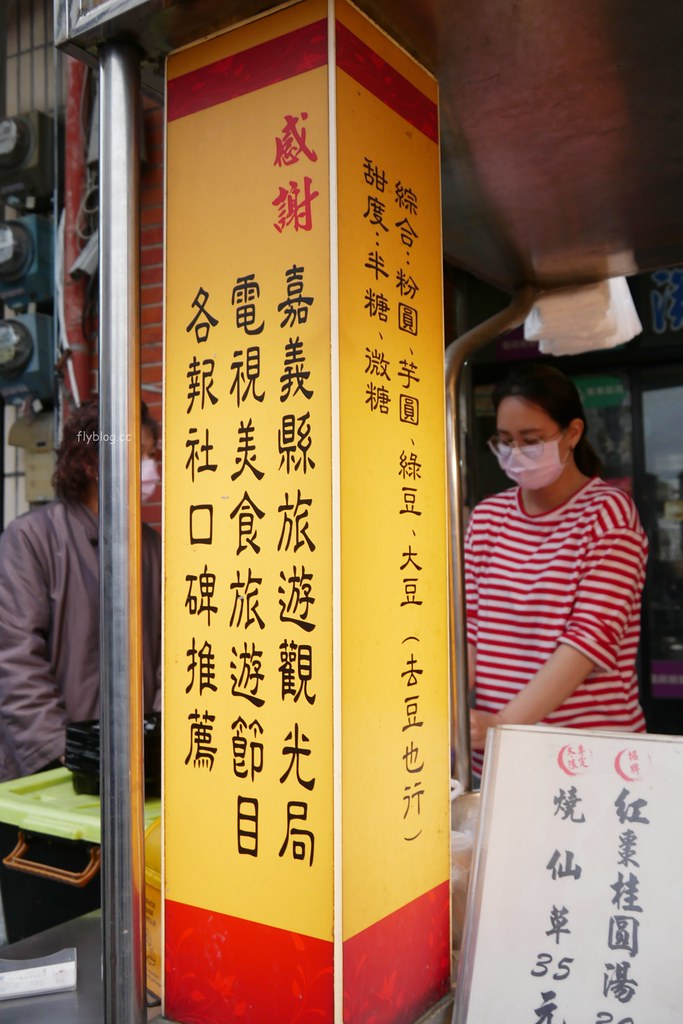 感謝
嘉義縣旅遊觀光局
電視美食旅遊節目
各報社口碑推薦
綜合：粉圓、芋圓、綠豆、大豆（去豆也行）
甜度：半糖、微糖
招牌
紅棗桂圓湯
冬季限定
燒仙草35元
flyblog.cc